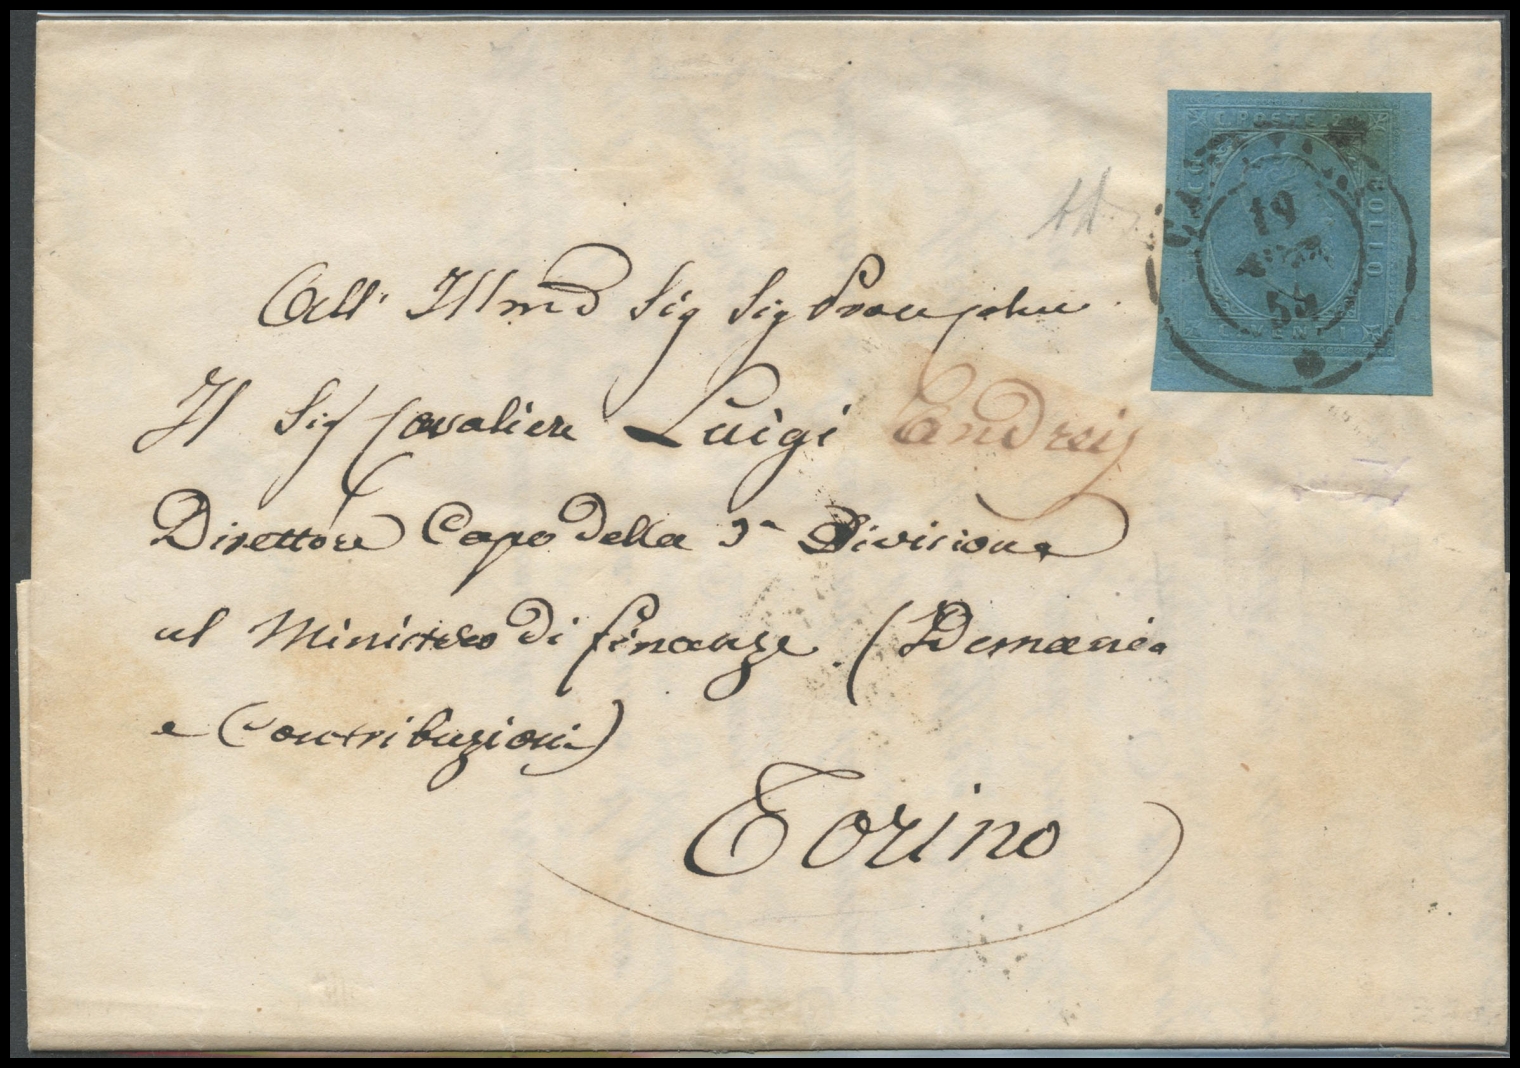 POSTE
BOLLO
19
55
All' Ill.mo Sig Sig Pron
Il Sig Cavaliere Luigi
Direttore Capo Della 3a Divisione
al Ministero Di finanze (Demanio
e Contribuzioni)
Torino